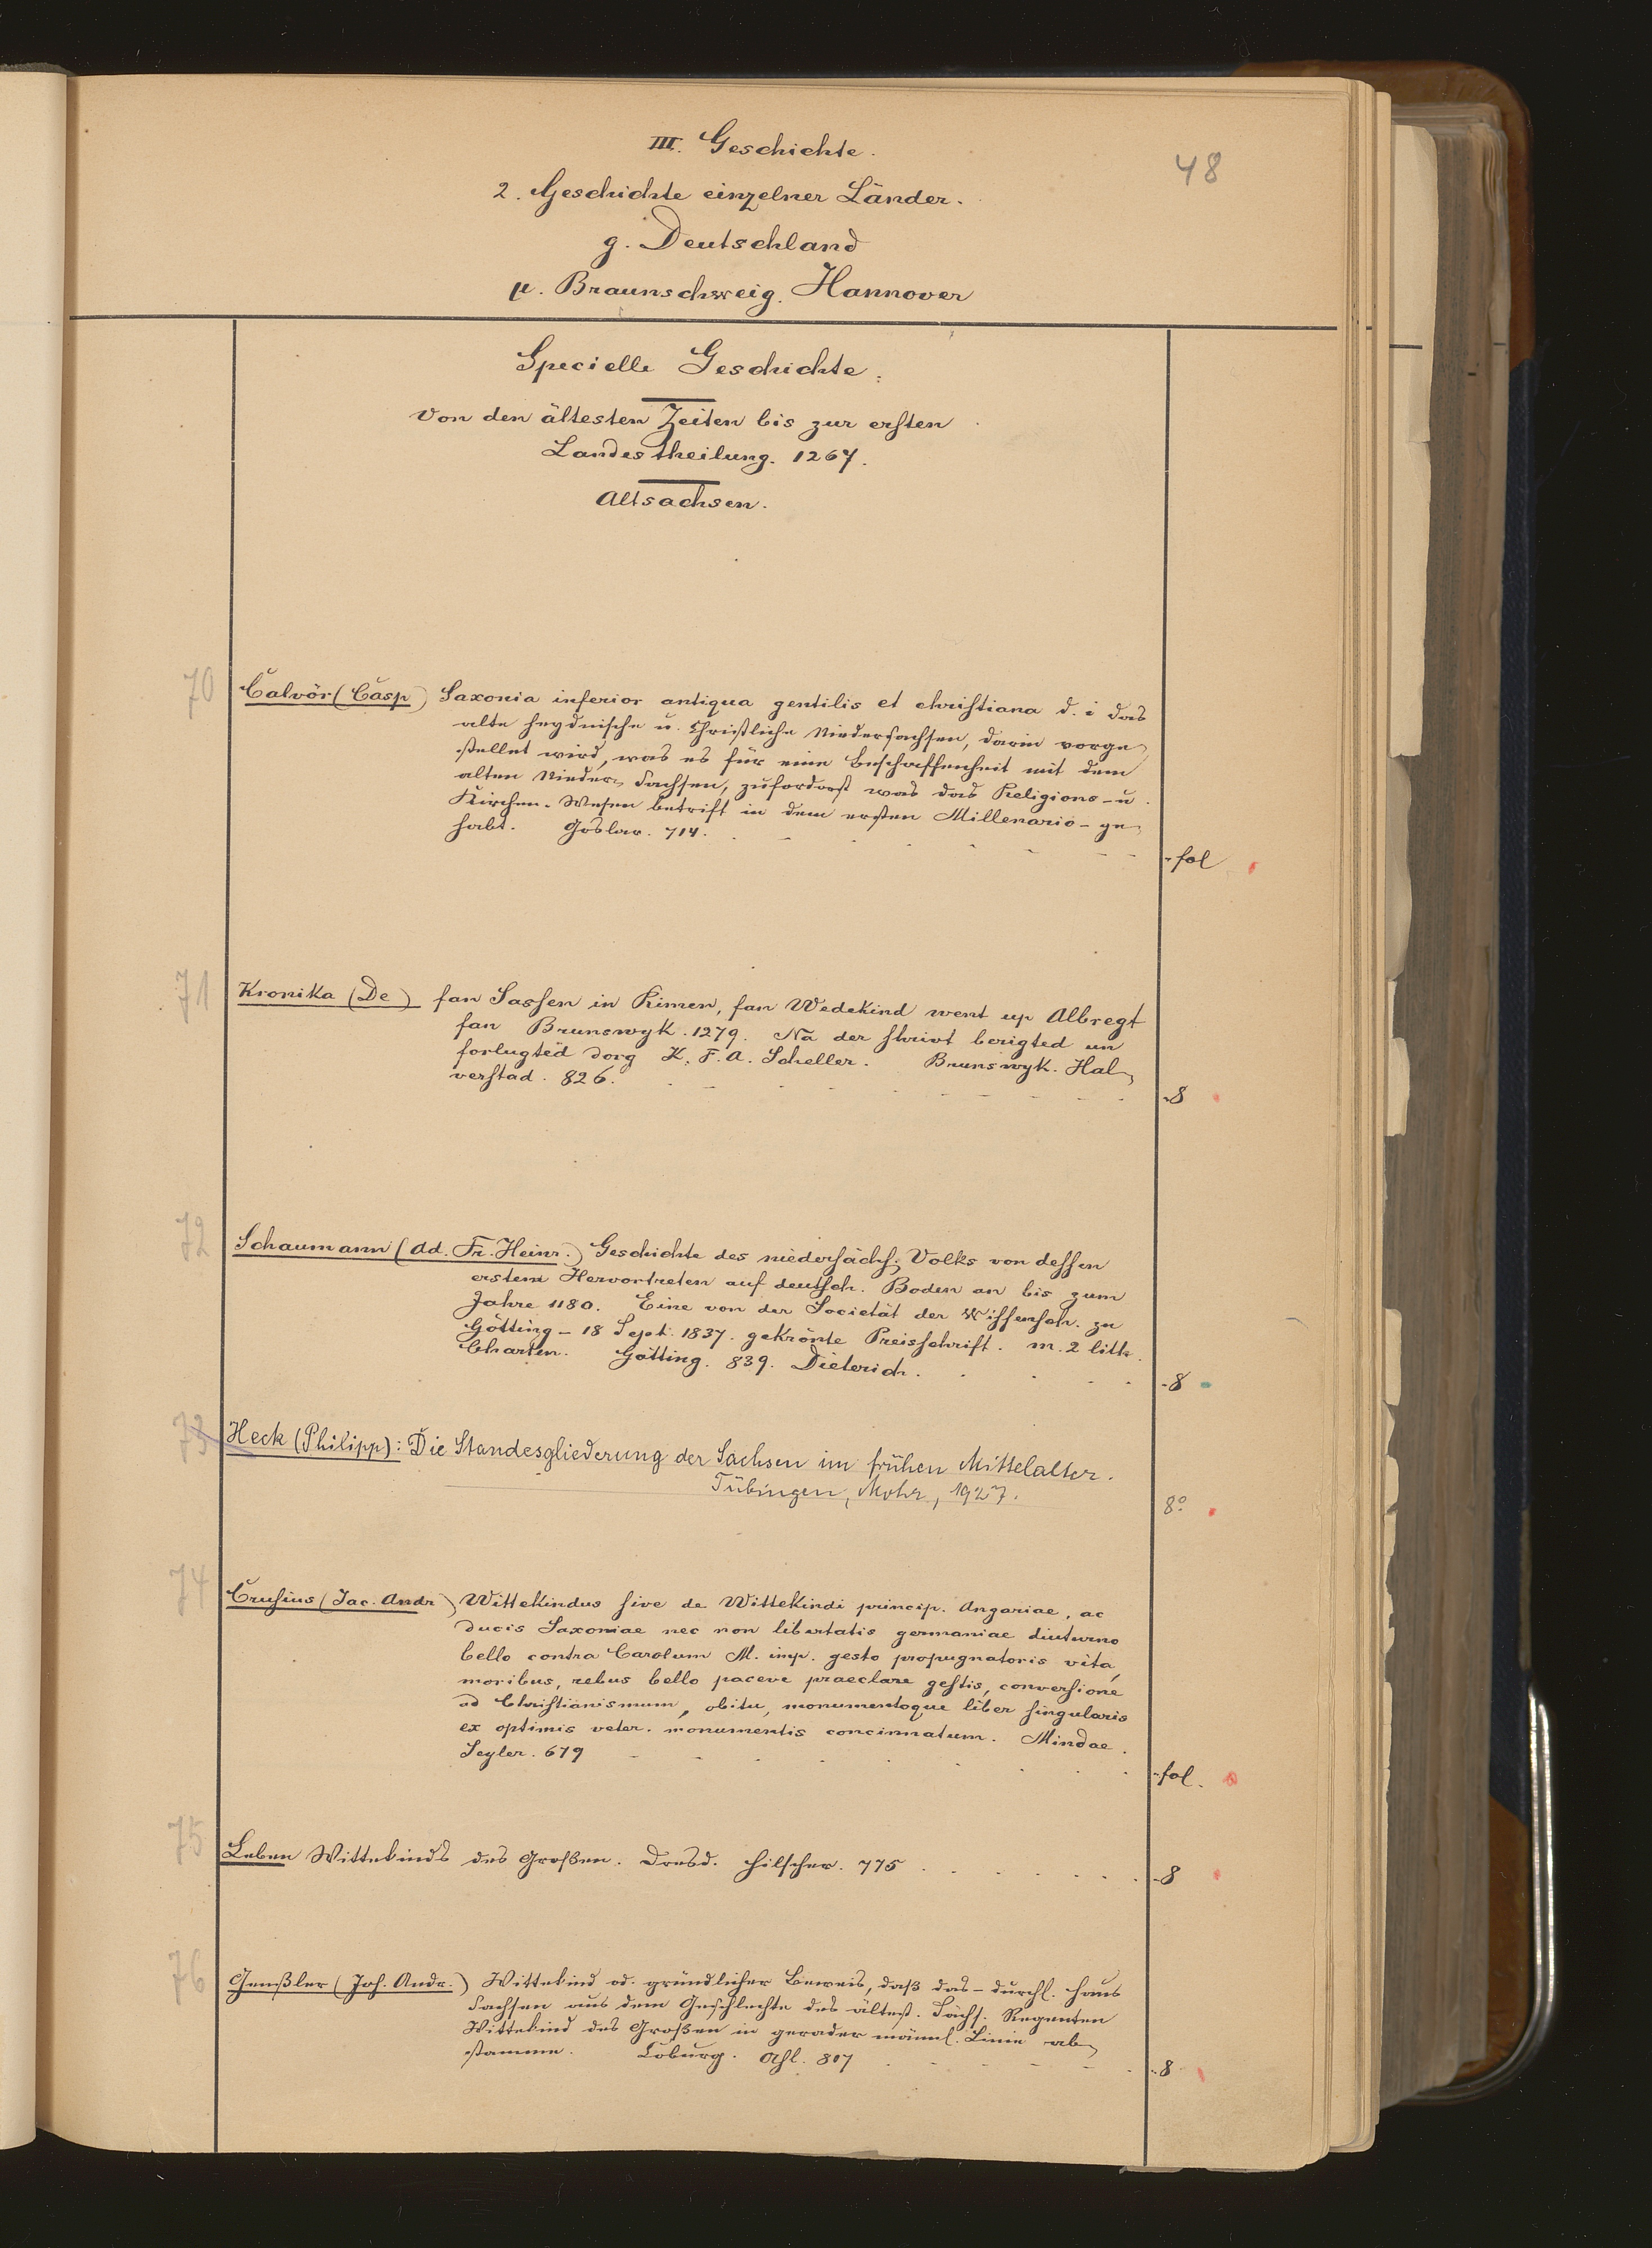 48
III. Geschichte.
2. Geschichte einzelner Länder.
g. Deutschland
µ. Braunschweig. Hannover
Specielle Geschichte:
Von den ältesten Zeiten bis zur ersten
Landestheilung. 1267.
Altsachsen.
70
Calvör (Casp) Saxonia inferior antiqua gentilis et christiana d. i das
alte heydnische u. Christliche Niedersachsen, darin vorge-
stellet wird, was es für eine Beschaffenheit mit dem
alten Nieder-Sachsen, zuforderst was das Religions- u.
Kirchen-Wesen betrift in dem ersten Millenario - ge-
habt. Goslar. 714.
fol
71
Kronika (De) fan Sassen in Rimen, fan Wedekind went up Albregt
fan Brunswyk. 1279. Na der shrivt berigted un
forlugted dorg K. F. A. Scheller. Brunswyk. Hal-
verstad. 826.
8
72
Schaumann (Ad. Fr. Heinr.) Geschichte des niedersächs. Volks von dessen
erstem Hervortreten auf deutsch. Boden an bis zum
Jahre 1180. Eine von der Societät der Wissensch. zu
Götting - 18 Sept. 1837. gekrönte Preisschrift. m. 2 lith.
Charten. Götting. 839. Dieterich.
8
73
Heck (Philipp): Die Standesgliederung der Sachsen im frühen Mittelalter.
Tübingen, Mohr, 1927.
8°
74
Crusius (Jac. Andr) Wittekindus sive de Wittekindi princip. Angariae, ac
ducis Saxoniae nec non libertatis germaniae diuturno
bello contra Carolum M. imp. gesto propugnatoris vita,
moribus, rebus bello paceve praeclare gestis, conversione
ad Christianismum, obitu, monumentoque liber singularis
ex optimis veter. monumentis concinnatum. Mindae.
Seyler. 679
fol.
75
Leben Wittekinds des Großen. Dresd. Hilscher. 775
8
76
Genßler (Joh. Andr.) Wittekind od. gründlicher Beweis, daß das - durchl. Haus
Sachsen aus dem Geschlechte des ältest. Sächs. Regenten
Wittekind des Großen in gerader männl. Linie ab-
stamme. Coburg. Ahl. 817
8